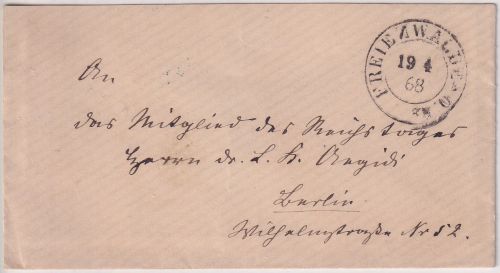 FREIENWALDE a.O.
19 4
68
An
das Mitglied des Reichstages
Herrn Dr. L. K. Aegidi
Berlin
Wilhelmstraße Nr 52.